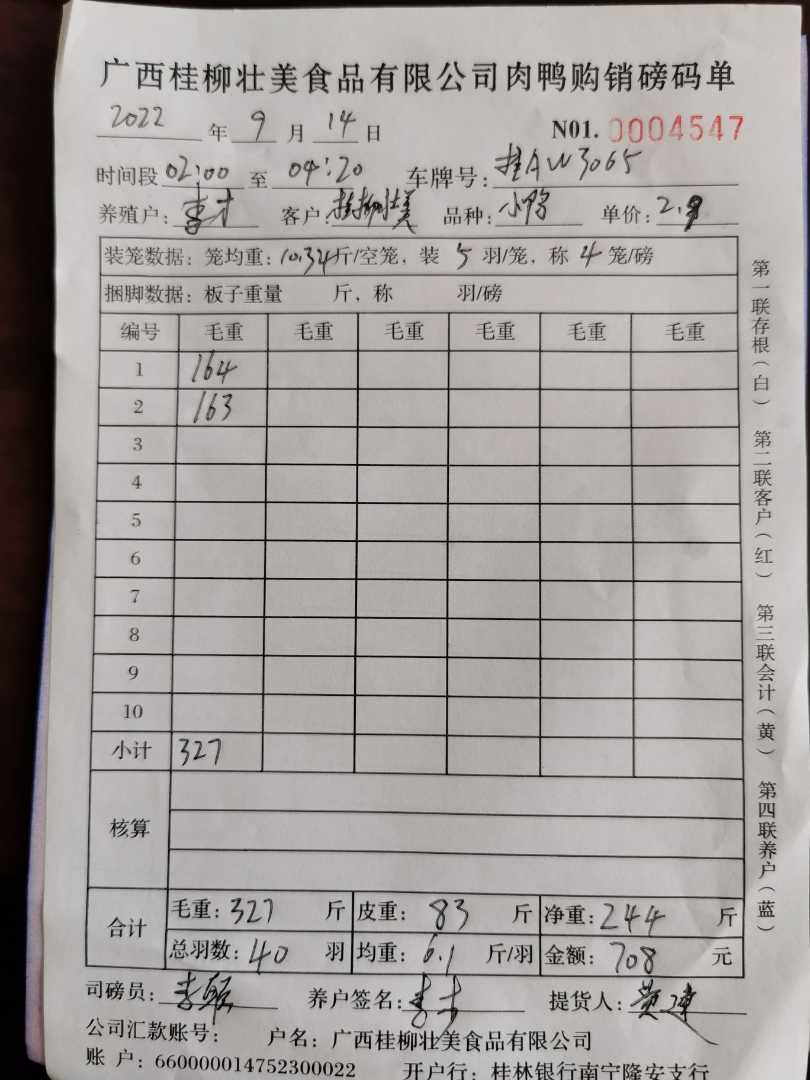 广西桂柳壮美食品有限公司肉鸭购销磅码单
2022 年 9 月 14 日 N01. 0004547
时间段 02:00 至 04:20 车牌号: 桂AW3065
养殖户: 李才 客户: 桂柳壮美 品种: 小鸭 单价: 2.9
装笼数据: 笼均重: 10.34斤/空笼, 装 5 羽/笼, 称 4 笼/磅
捆脚数据: 板子重量 斤, 称 羽/磅
编号 毛重 毛重 毛重 毛重 毛重 毛重
1 164
2 163
3
4
5
6
7
8
9
10
小计 327
核算
合计 毛重: 327 斤 皮重: 83 斤 净重: 244 斤
总羽数: 40 羽 均重: 6.1 斤/羽 金额: 708 元
司磅员: 李 养户签名: 李才 提货人: 黄建
公司汇款账号: 户名: 广西桂柳壮美食品有限公司
账 户: 660000014752300022 开户行: 桂林银行南宁隆安支行
第一联存根(白) 第二联客户(红) 第三联会计(黄) 第四联养户(蓝)